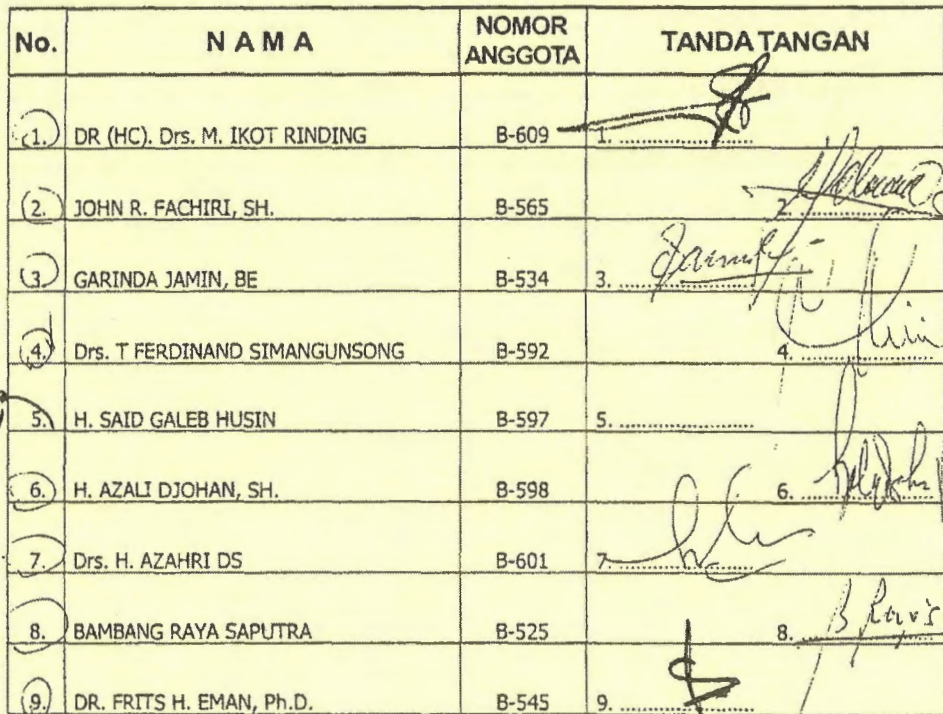 No. NAMA NOMOR ANGGOTA TANDA TANGAN
1. DR (HC). Drs. M. IKOT RINDING B-609 1. ....................
2. JOHN R. FACHIRI, SH. B-565 2. ....................
3. GARINDA JAMIN, BE B-534 3. ....................
4. Drs. T FERDINAND SIMANGUNSONG B-592 4. ....................
5. H. SAID GALEB HUSIN B-597 5. ....................
6. H. AZALI DJOHAN, SH. B-598 6. ....................
7. Drs. H. AZAHRI DS B-601 7. ....................
8. BAMBANG RAYA SAPUTRA B-525 8. ....................
9. DR. FRITS H. EMAN, Ph.D. B-545 9. ....................